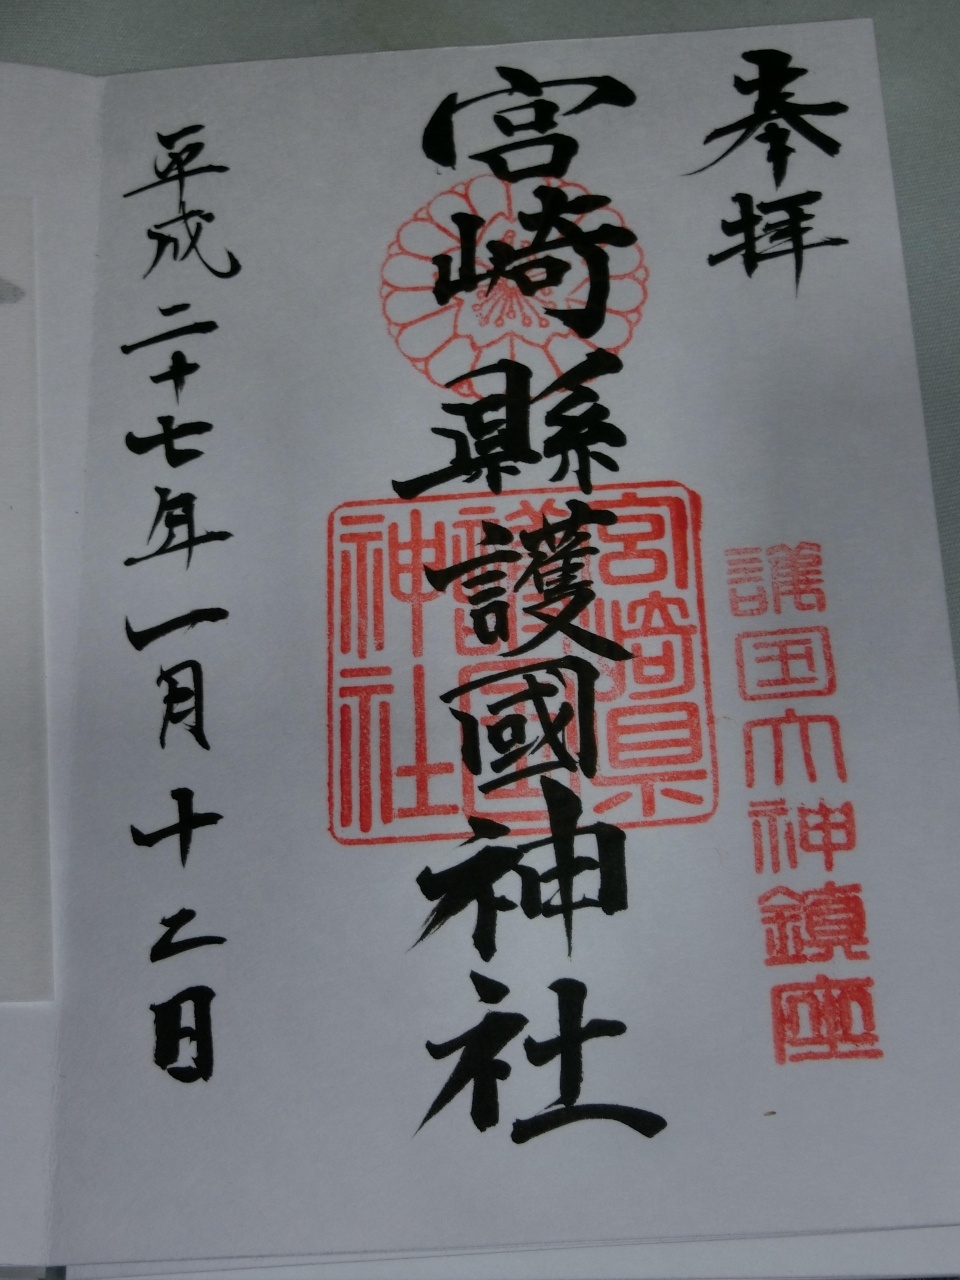 奉拝
護国大神鎮座
宮崎縣護國神社
宮崎県
護国
神社
平成二十七年一月十二日